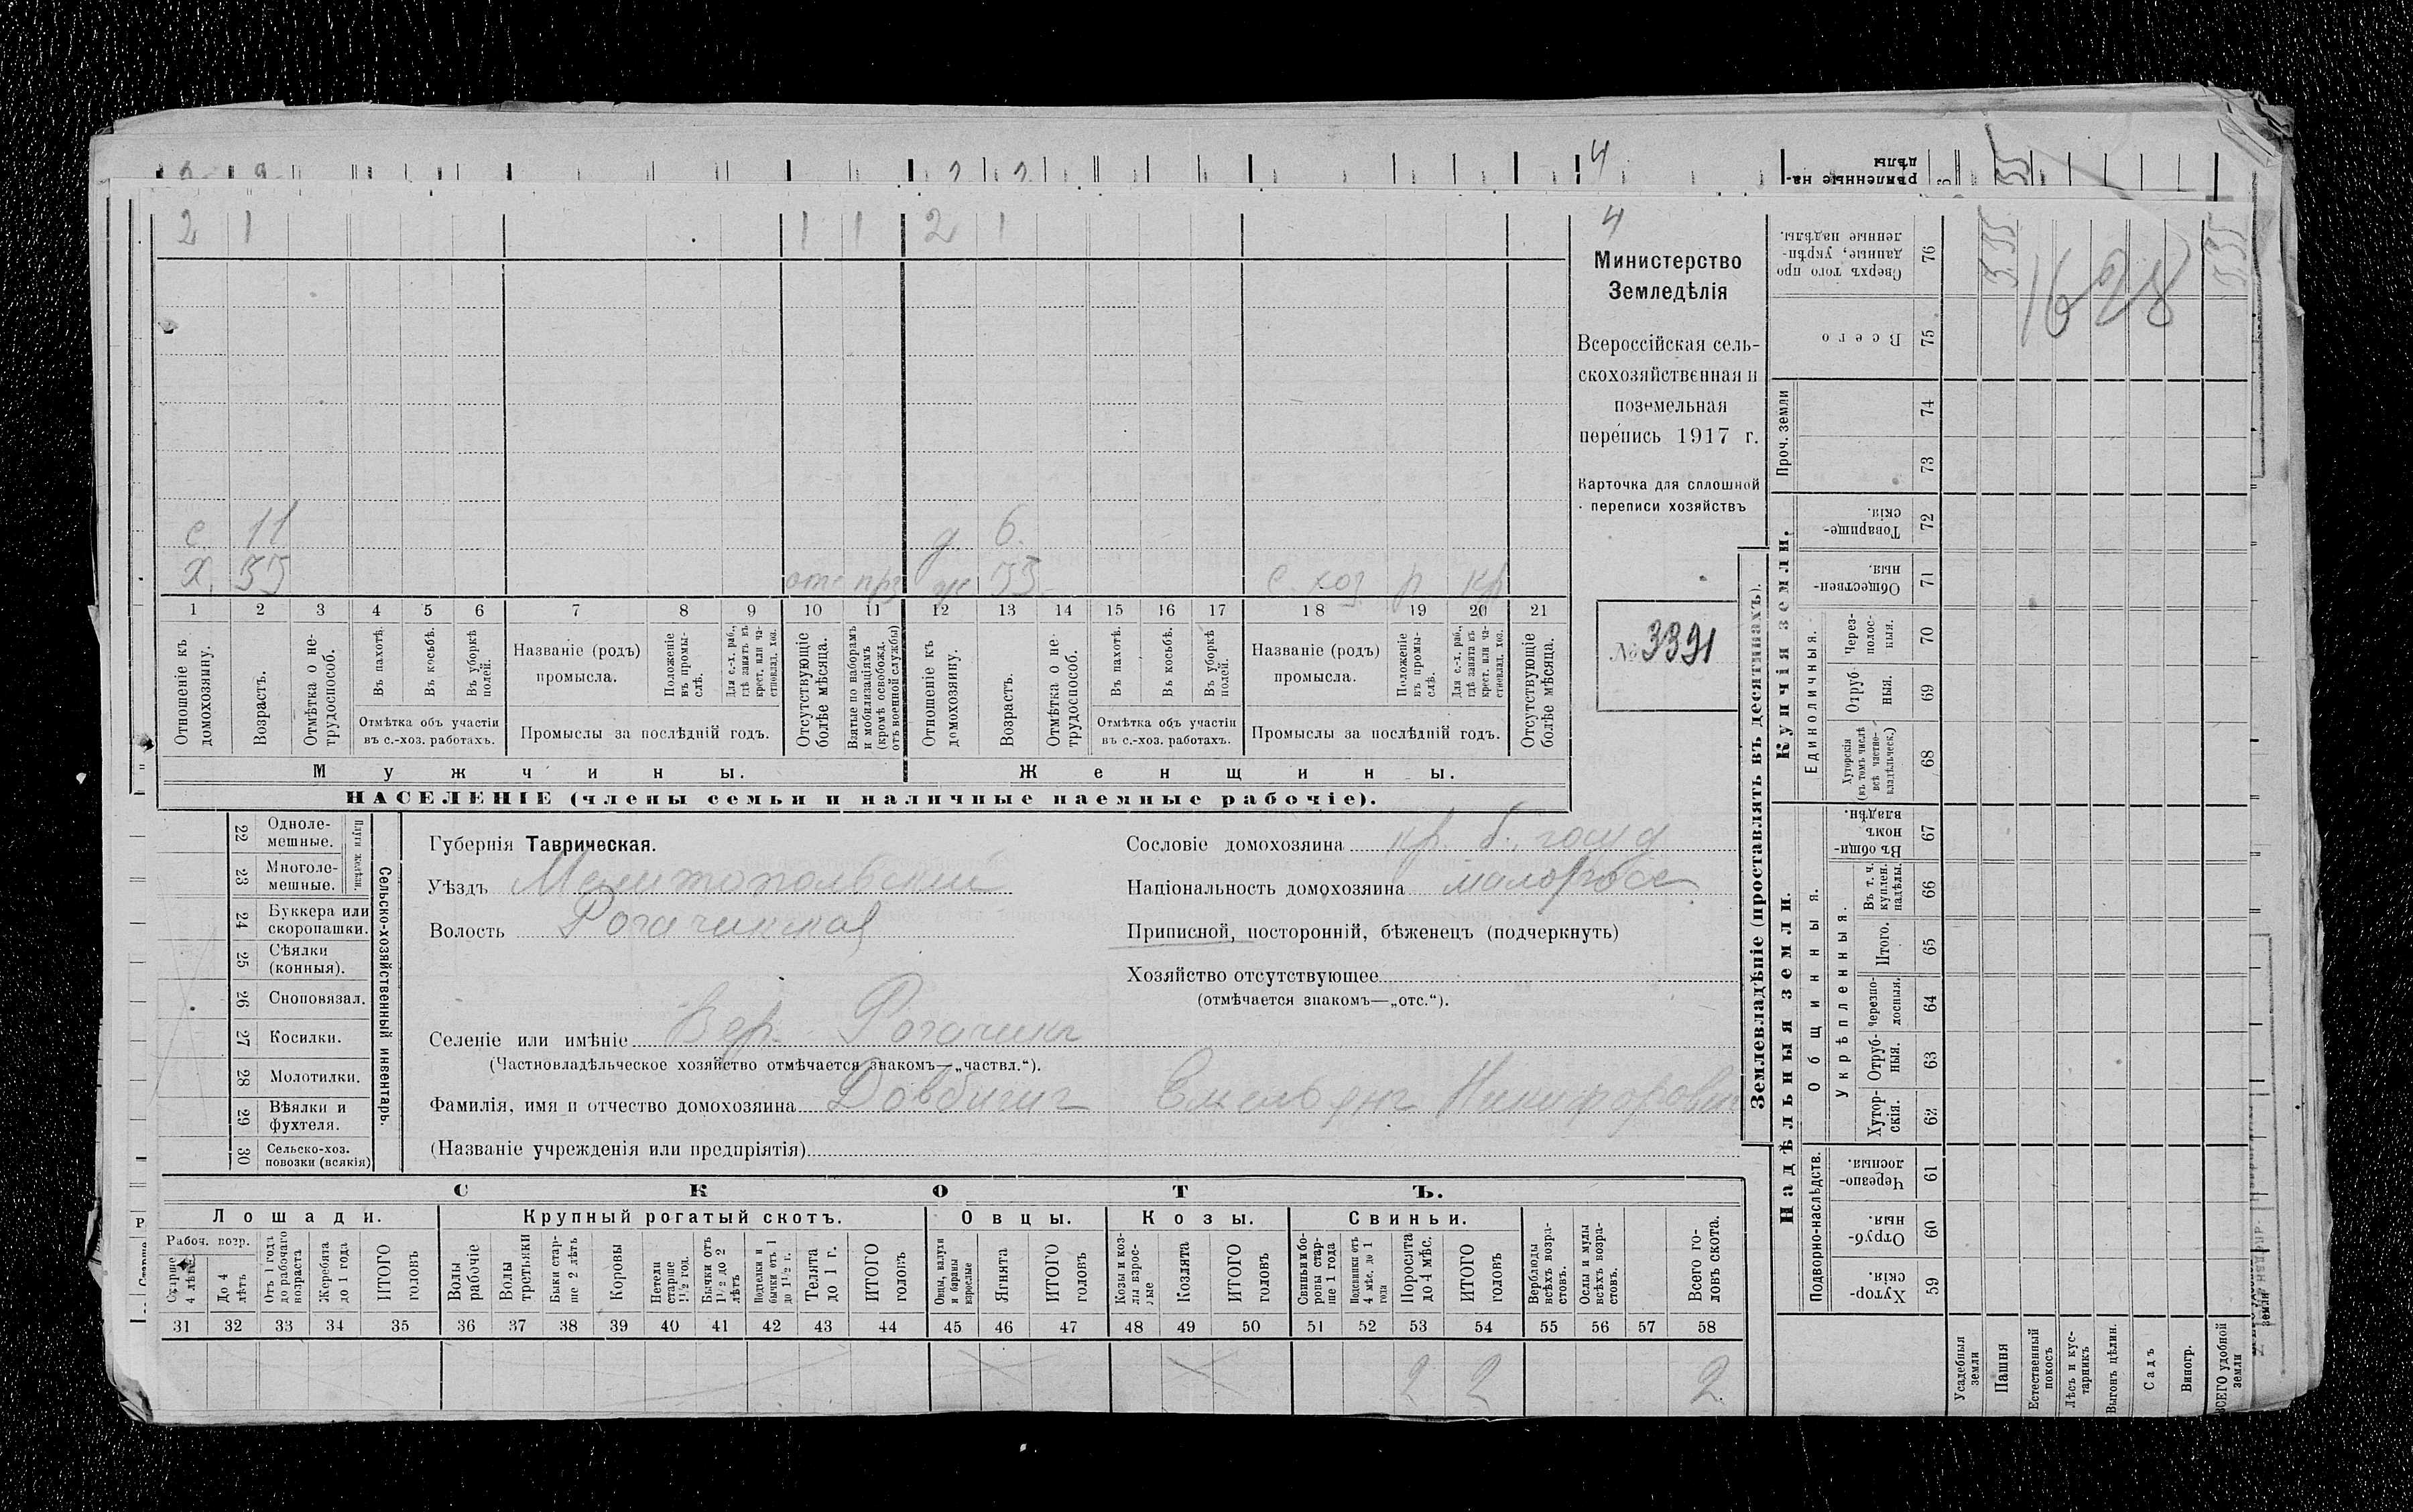 4
2 1 1 1 2 1
с 11 д 6.
х. 33 отс ж 33 с. хоз р кр
1 2 3 4 5 6 7 8 9 10 11 12 13 14 15 16 17 18 19 20 21
Отношеніе къ домохозяину.
Возрастъ.
Отмѣтка о не-
трудоспособ.
Въ пахотѣ.
Въ косьбѣ.
Въ уборкѣ полей.
Отмѣтка объ участіи
въ с.-хоз. работахъ.
Названіе (родъ)
промысла.
Положеніе въ промы-
слѣ.
Для с.-х. раб.,
гдѣ занятъ въ
крест. или ча-
стновлад. хоз.
Промыслы за послѣдній годъ.
Отсутствующіе
болѣе мѣсяца.
Взятые по наборамъ
и мобилизаціямъ
(кромѣ освобожд.
отъ военной службы)
Отношеніе къ
домохозяину.
Возрастъ.
Отмѣтка о не-
трудоспособ.
Въ пахотѣ.
Въ косьбѣ.
Въ уборкѣ
полей.
Отмѣтка объ участіи
въ с.-хоз. работахъ.
Названіе (родъ)
промысла.
Положеніе
въ промы-
слѣ.
Для с.-х. раб.,
гдѣ занята въ
крест. или ча-
стновлад. хоз.
Промыслы за послѣдній годъ.
Отсутствующіе
болѣе мѣсяца.
Мужчины.
Женщины.
НАСЕЛЕНІЕ (члены семьи и наличные наемные рабочіе).
4
Министерство
Земледѣлія
Всероссійская сель-
скохозяйственная и
поземельная
перепись 1917 г.
Карточка для сплошной
переписи хозяйствъ
№ 3391
22 Одноле-
мешные.
23 Многоле-
мешные.
Плуги желѣзн.
24 Буккера или
скоропашки.
25 Сѣялки
(конныя).
26 Сноповязал.
27 Косилки.
28 Молотилки.
29 Вѣялки и
фухтеля.
30 Сельско-хоз.
повозки (всякія)
Сельско-хозяйственный инвентарь.
Губернія Таврическая.
Уѣздъ Мелитопольскій
Волость Рогачинская
Селеніе или имѣніе Вер. Рогачикъ
(Частновладѣльческое хозяйство отмѣчается знакомъ—„частвл.“).
Фамилія, имя и отчество домохозяина Довбишъ Емельянъ Никифорович
(Названіе учрежденія или предпріятія)
Сословіе домохозяина кр. б.
Національность домохозяина малоросс
Приписной, посторонній, бѣженецъ (подчеркнуть)
Хозяйство отсутствующее
(отмѣчается знакомъ—„отс.“).
СКОТЪ.
Лошади.
Крупный рогатый скотъ.
Овцы.
Козы.
Свиньи.
Рабоч. возр.
Старше
4 лѣтъ
До 4
лѣтъ
Отъ 1 года
до рабочаго
возраста
Жеребята
до 1 года
ИТОГО
головъ
Волы
рабочіе
Волы
третьяки
Быки стар-
ше 2 лѣтъ
Коровы
Нетели
старше
1½ год.
Бычки отъ
1½ до 2
лѣтъ
Нетелки и
бычки отъ 1
до 1½ г.
Телята
до 1 г.
ИТОГО
головъ
Овцы, валухи
и бараны
взрослые
Ягнята
ИТОГО
головъ
Козы и коз-
лы взрос-
лые
Козлята
ИТОГО
головъ
Свиньи и бо-
ровы стар-
ше 1 года
Подсвинки отъ
4 мѣс. до 1
года
Поросята
до 4 мѣс.
ИТОГО
головъ
Верблюды
всѣхъ возра-
стовъ.
Ослы и мулы
всѣхъ возра-
стовъ.
Всего го-
ловъ скота.
31 32 33 34 35 36 37 38 39 40 41 42 43 44 45 46 47 48 49 50 51 52 53 54 55 56 57 58
2 2 2
Землевладѣніе (проставлять въ десятинахъ).
Купчія земли.
Надѣльныя земли.
Сверхъ того про
данные, укрѣп-
ленные надѣлы.
76
Всего
75
Проч. земли
74
73
Товарище-
скія.
72
Обществен-
ныя.
71
Единоличныя.
Через-
полос-
ныя.
70
Отруб-
ныя.
69
Хуторскія
(въ томъ числѣ
всѣ частно-
владѣльческ.)
68
Въ общи-
номъ
владѣн.
67
Общинныя.
Укрѣпленныя.
Въ т. ч.
куплен.
надѣлы.
66
Итого.
65
Черезпо-
лосныя.
64
Отруб-
ныя.
63
Хутор-
скія.
62
Подворно-наслѣдств.
Черезпо-
лосныя.
61
Отруб-
ныя.
60
Хутор-
скія.
59
1628
Усадебныя
земли
Пашня
Естественный
покосъ
Лѣсъ и кус-
тарникъ
Выгонъ цѣлин.
Садъ
Виногр.
ВСЕГО удобной
земли